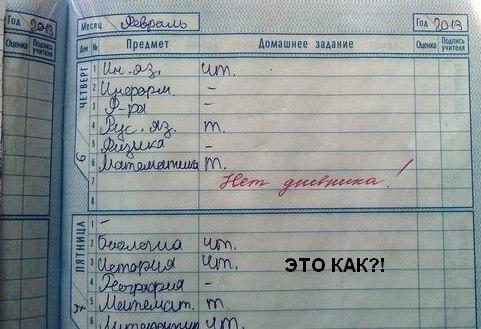 Год 2013 Месяц Февраль Год 2013
Оценка Подпись учителя Дни № Предмет Домашнее задание Оценка Подпись учителя
ЧЕТВЕРГ
6
1 Ин. яз. чт.
2 Информ -
3 Ф-ра -
4 Рус. яз. т.
5 Физика -
6 Математика т.
7 Нет дневника!
8
ПЯТНИЦА
1 -
2 Биология чт.
3 История чт.
ЭТО КАК?!
4 География -
5 Математ. т.
6 чт.